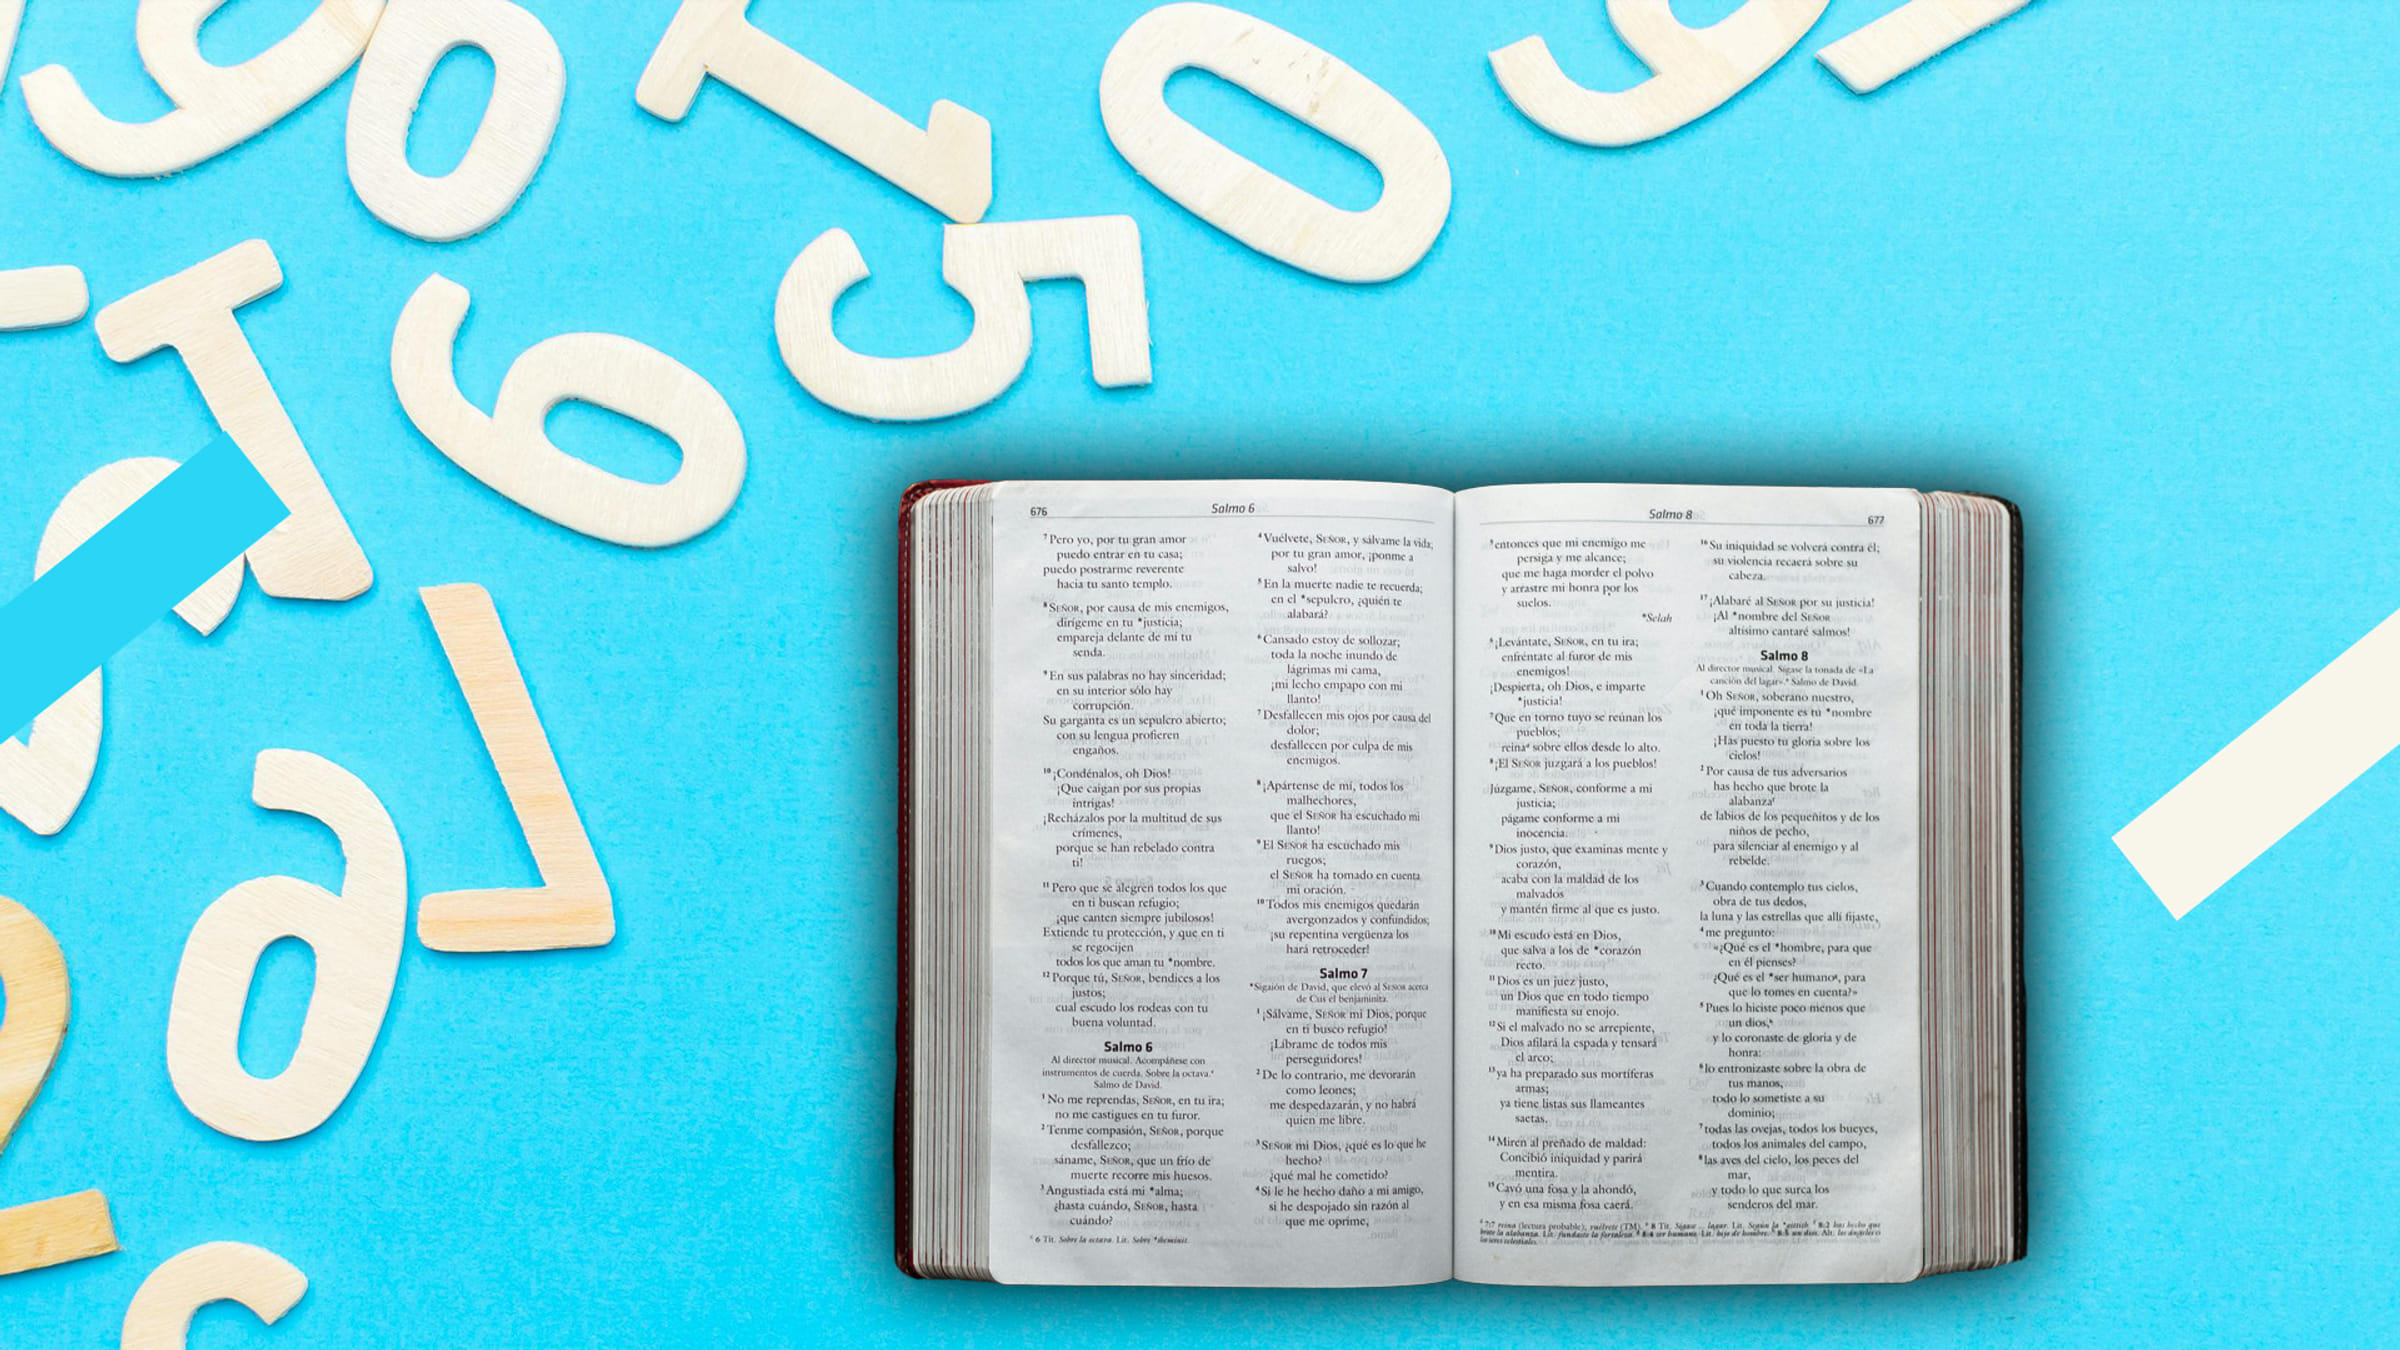 676
Salmo 6
⁷Pero yo, por tu gran amor
puedo entrar en tu casa;
puedo postrarme reverente
hacia tu santo templo.
⁸SEÑOR, por causa de mis enemigos,
dirígeme en tu *justicia;
empareja delante de mí tu
senda.
⁹En sus palabras no hay sinceridad;
en su interior sólo hay
corrupción.
Su garganta es un sepulcro abierto;
con su lengua profieren
engaños.
¹⁰¡Condénalos, oh Dios!
¡Que caigan por sus propias
intrigas!
¡Recházalos por la multitud de sus
crímenes,
porque se han rebelado contra
ti!
¹¹Pero que se alegren todos los que
en ti buscan refugio;
¡que canten siempre jubilosos!
Extiende tu protección, y que en ti
se regocijen
todos los que aman tu *nombre.
¹²Porque tú, SEÑOR, bendices a los
justos;
cual escudo los rodeas con tu
buena voluntad.
Salmo 6
Al director musical. Acompáñese con
instrumentos de cuerda. Sobre la octava.
Salmo de David.
¹No me reprendas, SEÑOR, en tu ira;
no me castigues en tu furor.
²Tenme compasión, SEÑOR, porque
desfallezco;
sáname, SEÑOR, que un frío de
muerte recorre mis huesos.
³Angustiada está mi *alma;
¿hasta cuándo, SEÑOR, hasta
cuándo?
6 Tít. Sobre la octava. Lit. Sobre *sheminit.
⁴Vuélvete, SEÑOR, y sálvame la vida;
por tu gran amor, ¡ponme a
salvo!
⁵En la muerte nadie te recuerda;
en el *sepulcro, ¿quién te
alabará?
⁶Cansado estoy de sollozar;
toda la noche inundo de
lágrimas mi cama,
¡mi lecho empapo con mi
llanto!
⁷Desfallecen mis ojos por causa del
dolor;
desfallecen por culpa de mis
enemigos.
⁸¡Apártense de mí, todos los
malhechores,
que el SEÑOR ha escuchado mi
llanto!
⁹El SEÑOR ha escuchado mis
ruegos;
el SEÑOR ha tomado en cuenta
mi oración.
¹⁰Todos mis enemigos quedarán
avergonzados y confundidos;
¡su repentina vergüenza los
hará retroceder!
Salmo 7
*Sigaión de David, que elevó al SEÑOR acerca
de Cus el benjaminita.
¹¡Sálvame, SEÑOR mi Dios, porque
en ti busco refugio!
¡Líbrame de todos mis
perseguidores!
²De lo contrario, me devorarán
como leones;
me despedazarán, y no habrá
quien me libre.
³SEÑOR mi Dios, ¿qué es lo que he
hecho?
¿qué mal he cometido?
⁴Si le he hecho daño a mi amigo,
si he despojado sin razón al
que me oprime,
Salmo 8
677
⁵entonces que mi enemigo me
persiga y me alcance;
que me haga morder el polvo
y arrastre mi honra por los
suelos.
*Selah
⁶¡Levántate, SEÑOR, en tu ira;
enfréntate al furor de mis
enemigos!
¡Despierta, oh Dios, e imparte
*justicia!
⁷Que en torno tuyo se reúnan los
pueblos;
reina sobre ellos desde lo alto.
⁸¡El SEÑOR juzgará a los pueblos!
Júzgame, SEÑOR, conforme a mi
justicia;
págame conforme a mi
inocencia.
⁹Dios justo, que examinas mente y
corazón,
acaba con la maldad de los
malvados
y mantén firme al que es justo.
¹⁰Mi escudo está en Dios,
que salva a los de *corazón
recto.
¹¹Dios es un juez justo,
un Dios que en todo tiempo
manifiesta su enojo.
¹²Si el malvado no se arrepiente,
Dios afilará la espada y tensará
el arco;
¹³ya ha preparado sus mortíferas
armas;
ya tiene listas sus llameantes
saetas.
¹⁴Miren al preñado de maldad:
Concibió iniquidad y parirá
mentira.
¹⁵Cavó una fosa y la ahondó,
y en esa misma fosa caerá.
¹⁶Su iniquidad se volverá contra él;
su violencia recaerá sobre su
cabeza.
¹⁷¡Alabaré al SEÑOR por su justicia!
¡Al *nombre del SEÑOR
altísimo cantaré salmos!
Salmo 8
Al director musical. Sígase la tonada de «La
canción del lagar». Salmo de David.
¹Oh SEÑOR, soberano nuestro,
¡qué imponente es tu *nombre
en toda la tierra!
¡Has puesto tu gloria sobre los
cielos!
²Por causa de tus adversarios
has hecho que brote la
alabanza
de labios de los pequeñitos y de los
niños de pecho,
para silenciar al enemigo y al
rebelde.
³Cuando contemplo tus cielos,
obra de tus dedos,
la luna y las estrellas que allí fijaste,
⁴me pregunto:
«¿Qué es el *hombre, para que
en él pienses?
¿Qué es el *ser humano, para
que lo tomes en cuenta?»
⁵Pues lo hiciste poco menos que
un dios,
y lo coronaste de gloria y de
honra:
⁶lo entronizaste sobre la obra de
tus manos,
todo lo sometiste a su
dominio;
⁷todas las ovejas, todos los bueyes,
todos los animales del campo,
⁸las aves del cielo, los peces del
mar,
y todo lo que surca los
senderos del mar.
7:7 reina (lectura probable); vuélvete (TM). 8 Tít. Sígase ... lagar. Lit. Según la *gittith. 8:2 has hecho que
brote la alabanza. Lit. fundaste la fortaleza. 8:4 ser humano. Lit. hijo de hombre. 8:5 un dios. Alt. los ángeles o
los seres celestiales.